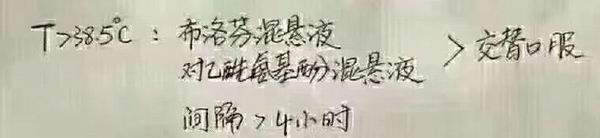 T>38.5℃：布洛芬混悬液
对乙酰氨基酚混悬液 > 交替口服
间隔>4小时